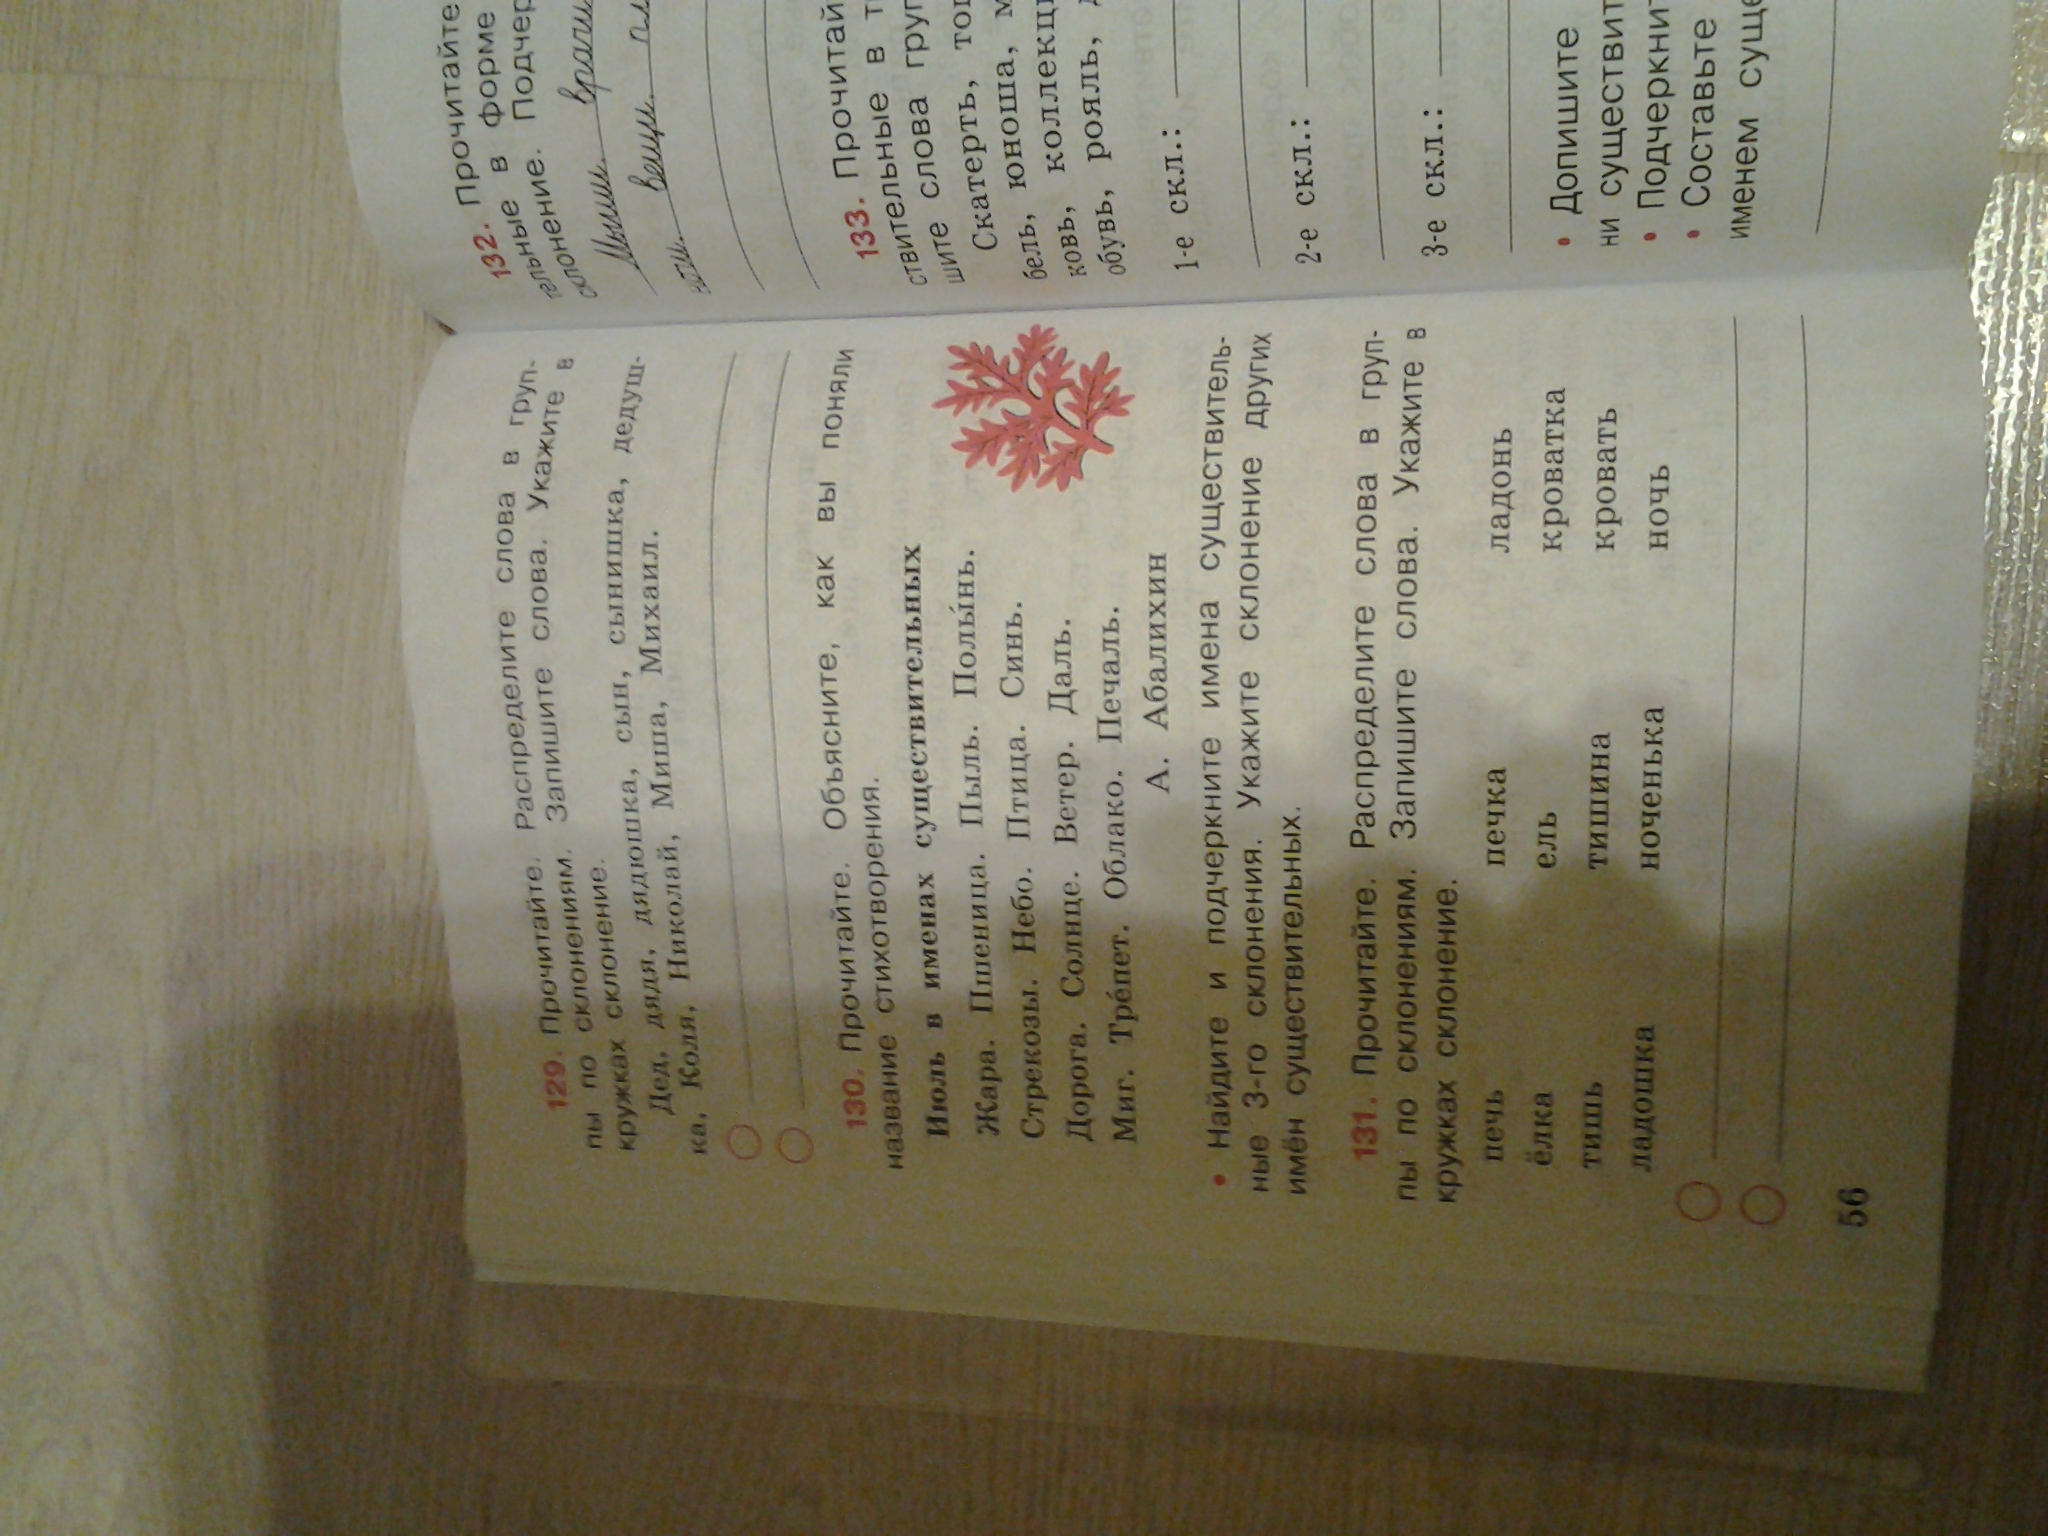 129. Прочитайте. Распределите слова в груп-
пы по склонениям. Запишите слова. Укажите в
кружках склонение.
Дед, дядя, дядюшка, сын, сынишка, дедуш-
ка, Коля, Николай, Миша, Михаил.
130. Прочитайте. Объясните, как вы поняли
название стихотворения.
Июль в именах существительных
Жара. Пшеница. Пыль. Полы́нь.
Стрекозы. Небо. Птица. Синь.
Дорога. Солнце. Ветер. Даль.
Миг. Тре́пет. Облако. Печаль.
А. Абалихин
• Найдите и подчеркните имена существитель-
ные 3-го склонения. Укажите склонение других
имён существительных.
131. Прочитайте. Распределите слова в груп-
пы по склонениям. Запишите слова. Укажите в
кружках склонение.
печь печка ладонь
ёлка ель кроватка
тишь тишина кровать
ладошка ноченька ночь
56
132. Прочитайте
тельные в форме
склонение. Подчер
133. Прочитай
ствительные в т
шите слова груп
Скатерть, то
бель, юноша, м
ковь, коллекц
обувь, рояль,
1-е скл.:
2-е скл.:
3-е скл.:
• Допишите
ни существит
• Подчеркнит
• Составьте
именем суще